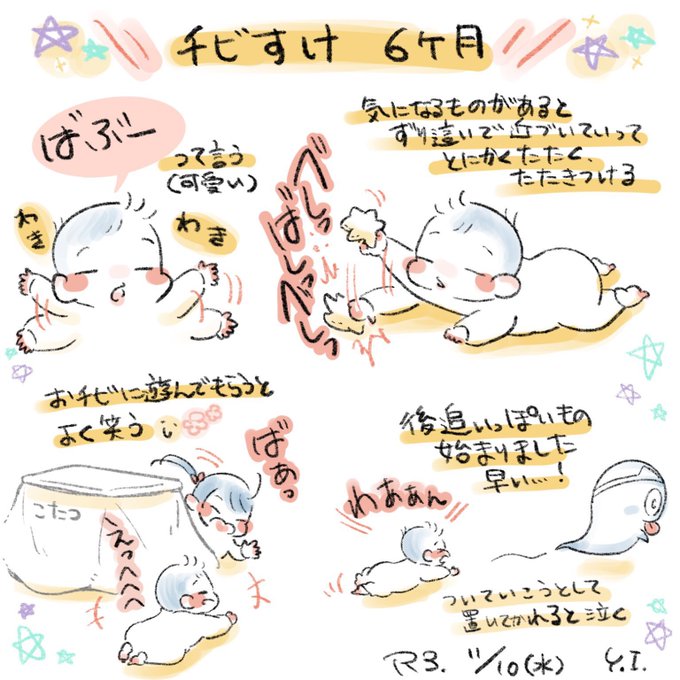 チビすけ 6ケ月
ばぶー
って言う
(可愛い)
わき
わき
気になるものがあると
ずり這いで近づいていって
とにかくたたく、
たたきつける
べしっ
ばしっべしっ
おチビに遊んでもらうと
よく笑う
ばぁっ
こたつ
えへへへ
後追いっぽいもの
始まりました
早い…!
わあぁん
ついていこうとして
置いてかれると泣く
R3. 11/10(水) Y.I.